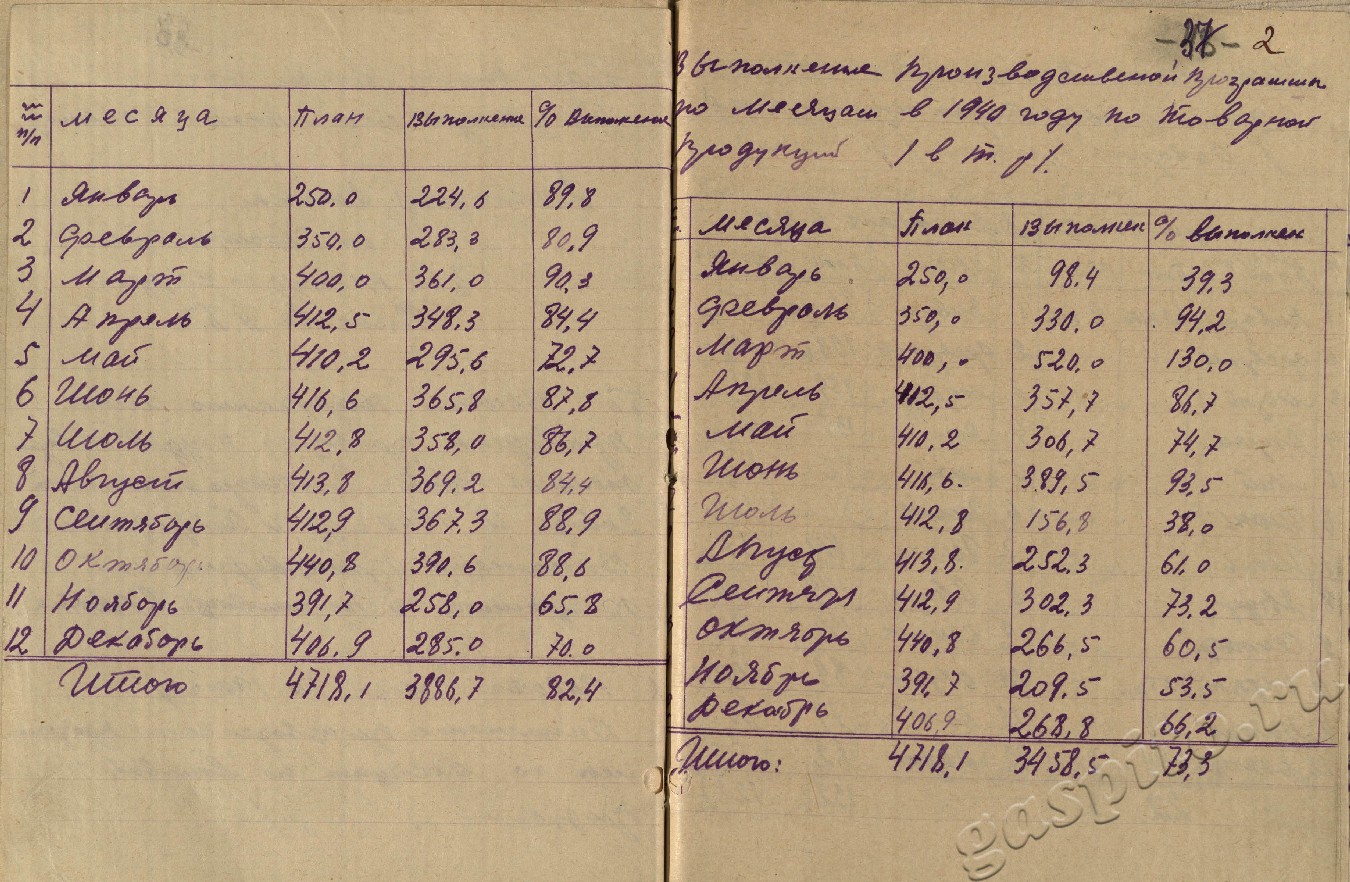 №№ п/п месяца План Выполнение % выполнения
1 Январь 250,0 224,6 89,8
2 Февраль 350,0 283,3 80,9
3 Март 400,0 361,0 90,3
4 Апрель 412,5 348,3 84,4
5 Май 410,2 295,6 72,7
6 Июнь 416,6 365,8 87,8
7 Июль 412,8 358,0 86,7
8 Август 413,8 369.2 84,4
9 Сентяборь 412,9 367.3 88,9
10 Октяборь 440,8 390,6 88,6
11 Нояборь 391,7 258,0 65.8
12 Декаборь 406.9 285.0 70.0
Итого 4718,1 3886,7 82,4
- - 2
Выполнение производственой программы
по месяцам в 1940 году по товарной
продукций / в т. р/.
месяца План Выполнен % выполнен
Январь 250,0 98.4 39.3
Февраль 350,0 330.0 94,2
Март 400,0 520.0 130,0
Апрель 412,5 357,7 86,7
Май 410,2 306,7 74,7
Июнь 416,6. 389,5 93,5
Июль 412,8 156,8 38,0
Август 413,8. 252.3 61.0
Сентябрь 412,9 302,3 73,2
Октябрь 440,8 266,5 60,5
Ноябрь 391,7 209.5 53.5
Декабрь 406,9 268,8 66,2
Итого: 4718,1 3458,5 73,3
gaspito.ru